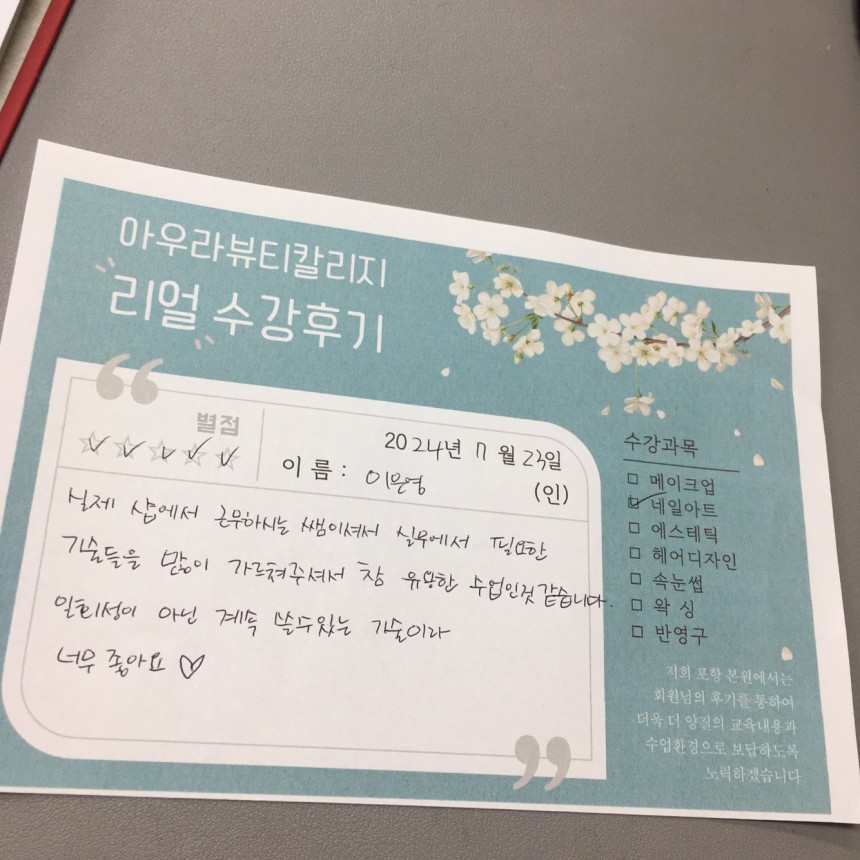 아우라뷰티칼리지
리얼 수강후기
별점
2024년 7월 23일
이름 : 이은영 (인)
실제 샵에서 근무하시는 쌤이셔서 실무에서 필요한
기술들을 많이 가르쳐주셔서 참 유용한 수업인것 같습니다.
일회성이 아닌 계속 쓸수있는 기술이라
너무 좋아요 ♡
수강과목
□ 메이크업
☑ 네일아트
□ 에스테틱
□ 헤어디자인
□ 속눈썹
□ 왁싱
□ 반영구
저희 포항 본원에서는
회원님의 후기를 통하여
더욱 더 양질의 교육내용과
수업환경으로 보답하도록
노력하겠습니다